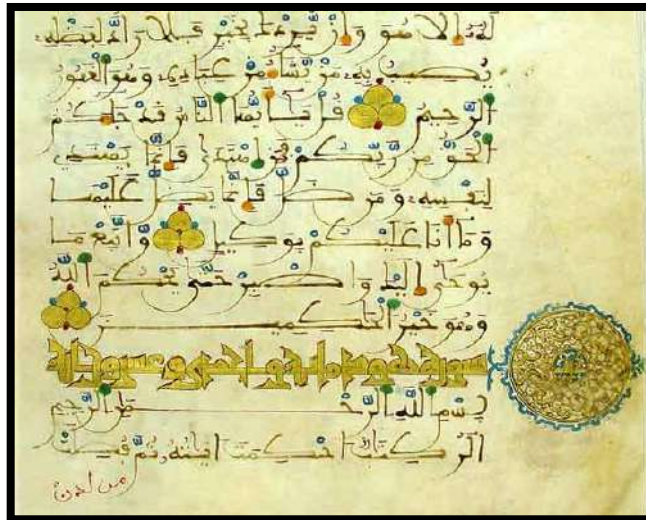 لَهُۥ إِلَّا هُوَ وَإِنْ يُرِدْكَ بِخَيْرٍ فَلَا رَآدَّ لِفَضْلِهِۦ
يُصِيبُ بِهِۦ مَنْ يَّشَآءُ مِنْ عِبَادِهِۦ وَهُوَ الْغَفُورُ
الرَّحِيمُ قُلْ يَٰٓأَيُّهَا النَّاسُ قَدْ جَآءَكُمُ
الْحَقُّ مِنْ رَّبِّكُمْ فَمَنِ اِهْتَدَىٰ فَإِنَّمَا يَهْتَدِي
لِنَفْسِهِۦ وَمَنْ ضَلَّ فَإِنَّمَا يَضِلُّ عَلَيْهَا
وَمَآ أَنَا عَلَيْكُمْ بِوَكِيلٍ وَاتَّبِعْ مَا
يُوحَىٰٓ إِلَيْكَ وَاصْبِرْ حَتَّىٰ يَحْكُمَ اللَّهُ
وَهُوَ خَيْرُ الْحَٰكِمِينَ
سورة هود مائة و احدى وعشرون اية
بِسْمِ اللَّهِ الرَّحْمَٰنِ الرَّحِيمِ
الٓر كِتَٰبٌ احْكِمَتَ ايَٰتُهُۥ ثُمَّ فُصِّلَتْ
من لدن